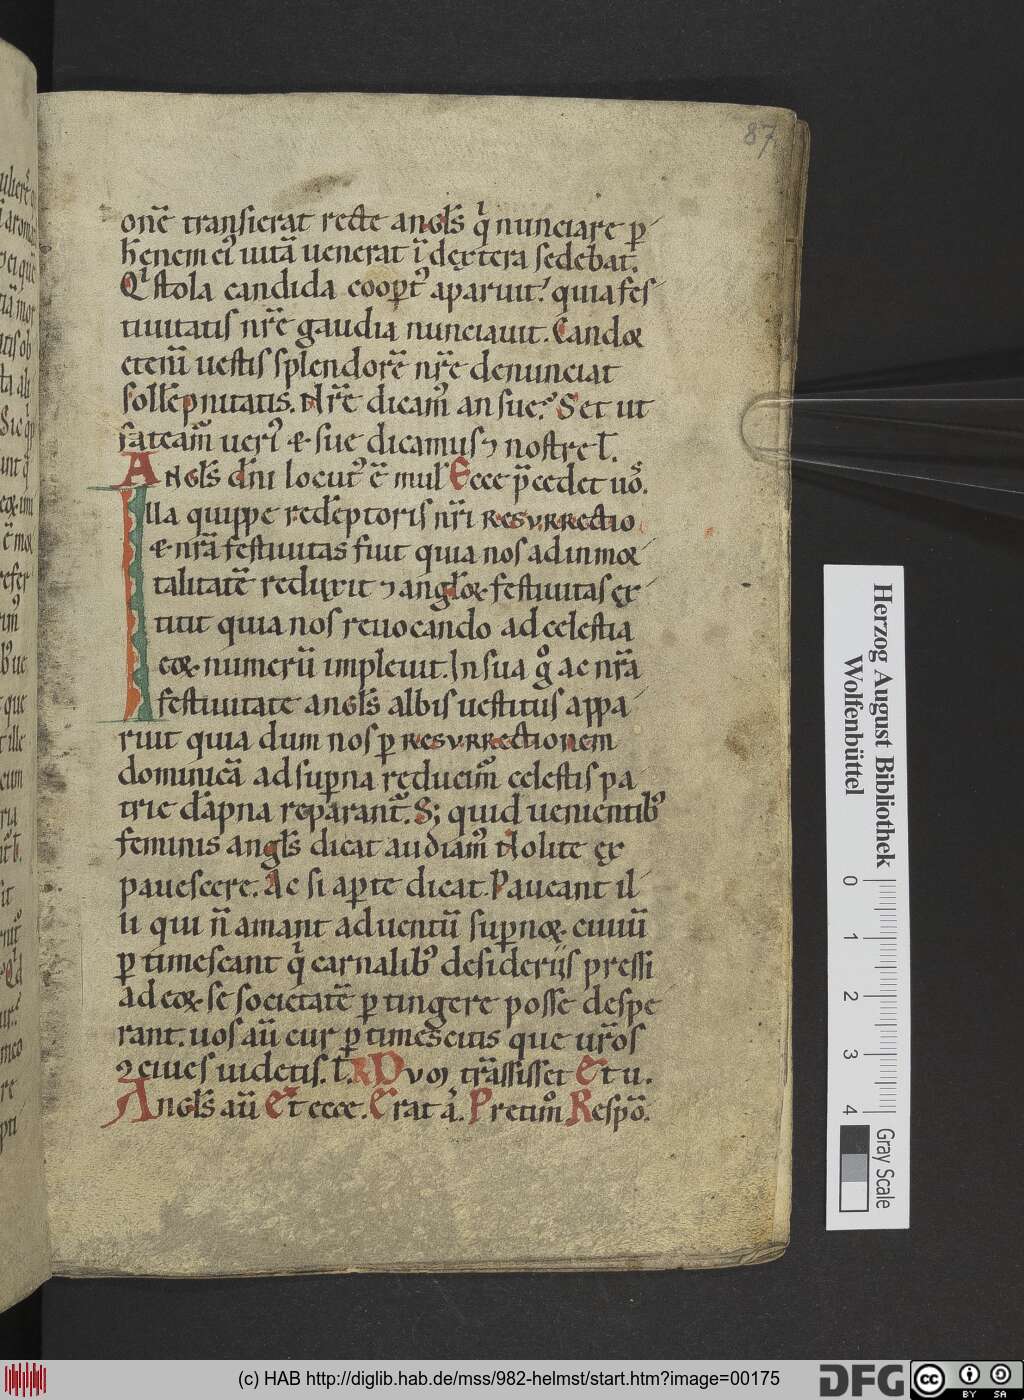 87
onē transierat recte angl̄s q̇ nunciare ꝑ
hēnem eiꝰ uitā uenerat ī dęxtera sedebat.
Qi stola candida cooꝑtꝰ aparuit. quia fes
tiuitatis nr̄e gaudia nunciauit. Candoꝝ
etenī uestis splendorē nr̄e denunciat
soll̄epnitatis. Nr̄e dicamꝰ an sue? Set ut
fateamꝰ uerꝰ & sue dicamus ⁊ nostre l̄.
Angl̄s dn̄i locutꝰ ē mul̄ Ecce p̄cedet uos.
Illa quippe redēptoris nr̄i resurrectio
& nr̄a festiuitas fuit quia nos ad inmoꝝ
talitatē reduxit ⁊ angl̄oꝝ festiuitas ęx
titit quia nos reuocando ad celestia
eoꝝ numerū impleuit. In sua gͦ ac nr̄a
festiuitate angl̄s albis uestitus appa
ruit quia dum nos ꝑ resurrectionem
dominicā ad suꝑna ręducimꝰ celestis pa
trie dāpna reparantꝰ. S; quid uenientibꝰ
feminis angl̄s dicat audiamꝰ Nolite ęx
pauescere. Ac si aꝑte dicat. Paueant il
li qui n̄ amant aduentū suꝑnoꝝ ciuiū
ꝑ timescant q̇ carnalibꝰ desideriis pressi
ad eoꝝ se societatē ꝑ tingere posse despe
rant. uos aū cur ꝑ timescitis que ur̄os
ꝯciues uidetis. l̄. R Dum trāssisset Et u.
Angl̄s aū Et ecce. Erat a. Pretim Respō.
Herzog August Bibliothek
Wolfenbüttel
0 1 2 3 4
Gray Scale
(c) HAB http://diglib.hab.de/mss/982-helmst/start.htm?image=00175
DFG
cc BY SA